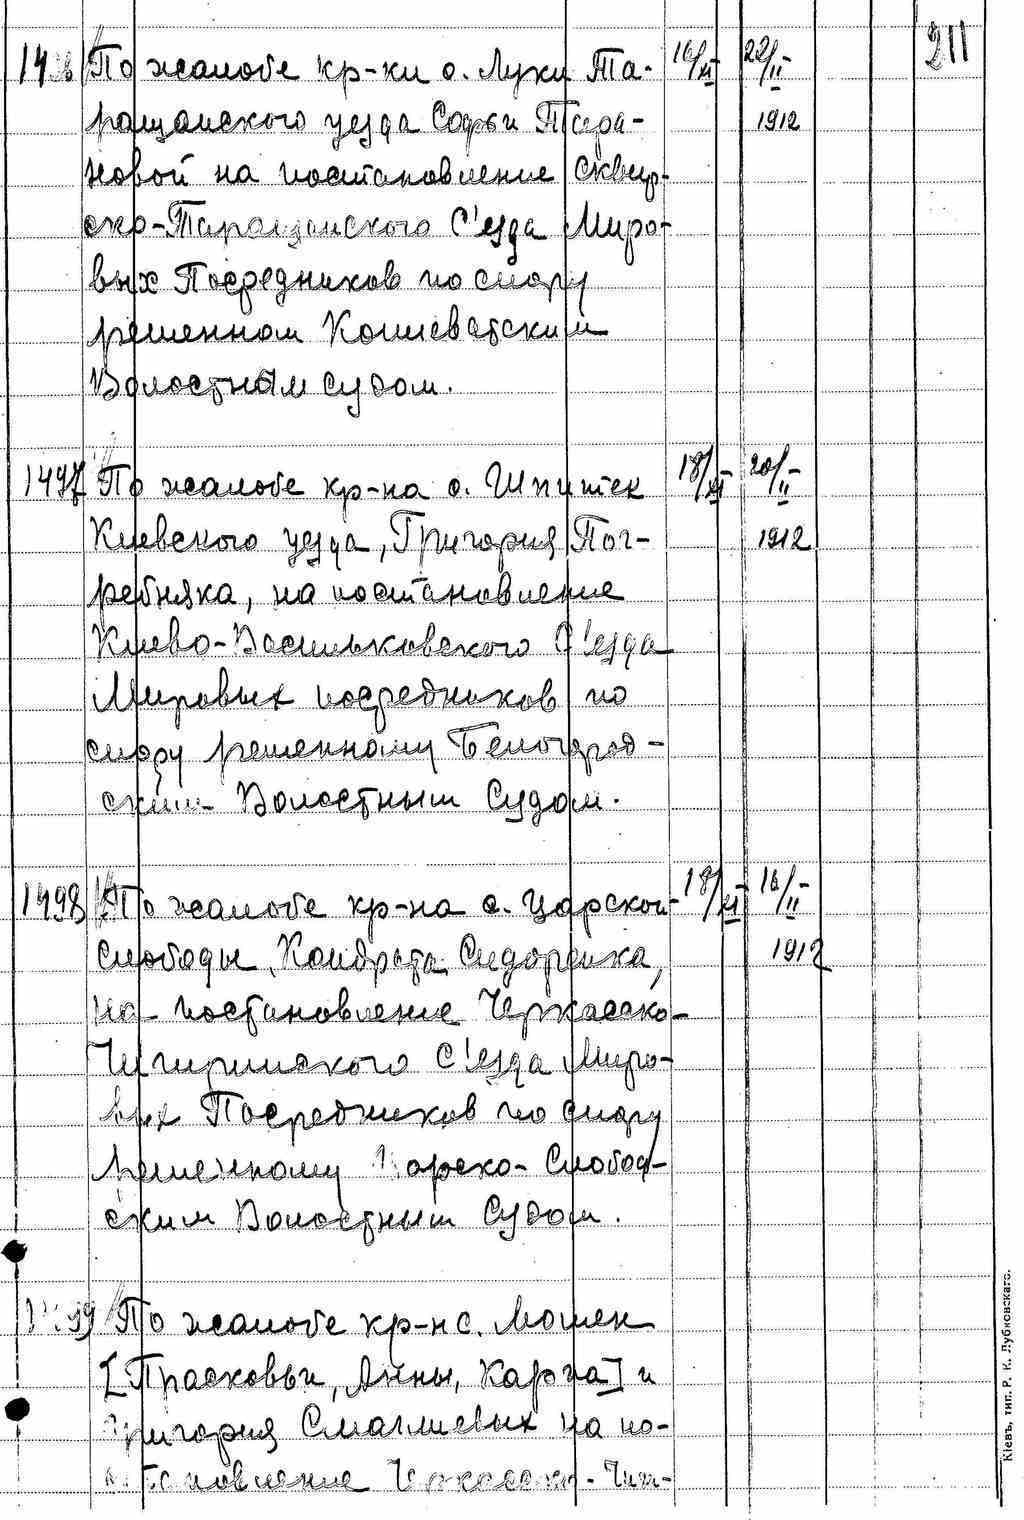 211
14 По жалобе кр-ки с. Луки Та- 16/XI 22/II
ращанского уезда Софьи Тара- 1912
новой на постановление Сквир-
ско-Таращанского С'езда Миро-
вых Посредников по спору
решенном Кошеватским
Волостным судом.
1497 По жалобе кр-на с. Шпитек 18/XI 20/II
Киевского уезда, Григория Пог- 1912
ребняка, на постановление
Киево-Васильковского С'езда
Мировых посредников по
спору решенному Белогород-
ским Волостным Судом.
1498 По жалобе кр-на с. Царской 18/XI 16/II
Слободы, Кондрата Сидоренка, 1912
на постановление Черкасско-
Чигиринского С'езда Миро-
вых Посредников по спору
решенному Царско-Слобод-
ским Волостным Судом.
99 По жалобе кр-н с. Мошен
[Прасковьи, Анны, Карпа] и
Григория Смаглиевых на по-
становление Черкасско-Чиги-
Кіевъ, тип. Р. К. Лубковскаго.